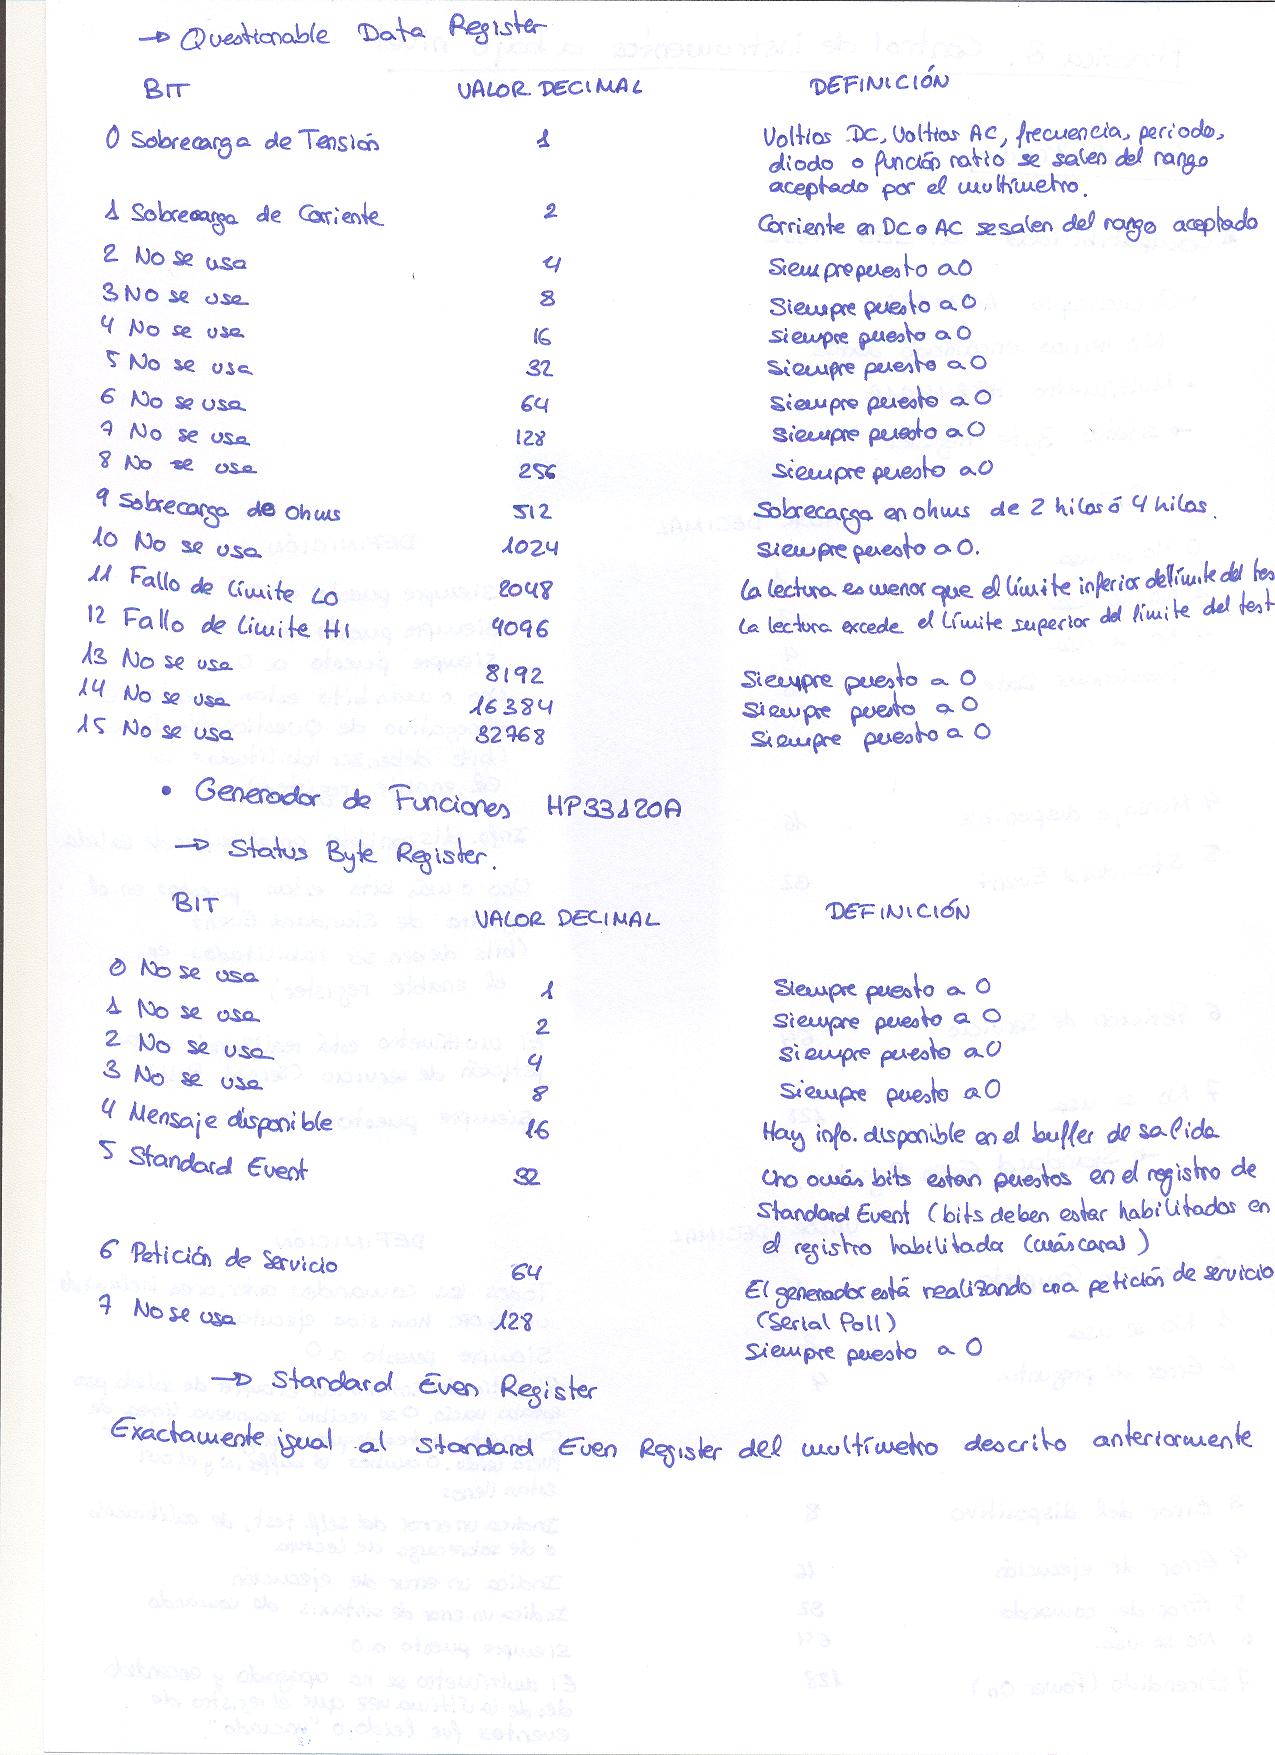 → Questionable Data Register
BIT VALOR DECIMAL DEFINICIÓN
0 Sobrecarga de Tensión 1 Voltios DC, Voltios AC, frecuencia, periodo,
diodo o función ratio se salen del rango
aceptado por el multímetro.
1 Sobrecarga de Corriente 2 Corriente en DC o AC se salen del rango aceptado
2 No se usa 4 Siempre puesto a 0
3 No se usa 8 Siempre puesto a 0
4 No se usa 16 Siempre puesto a 0
5 No se usa 32 Siempre puesto a 0
6 No se usa 64 Siempre puesto a 0
7 No se usa 128 Siempre puesto a 0
8 No se usa 256 Siempre puesto a 0
9 Sobrecarga de Ohms 512 Sobrecarga en ohms de 2 hilos ó 4 hilos.
10 No se usa 1024 Siempre puesto a 0.
11 Fallo de Límite LO 2048 La lectura es menor que el límite inferior del límite del tes
12 Fallo de Límite HI 4096 La lectura excede el límite superior del límite del test
13 No se usa 8192 Siempre puesto a 0
14 No se usa 16384 Siempre puesto a 0
15 No se usa 32768 Siempre puesto a 0
• Generador de Funciones HP33120A
→ Status Byte Register.
BIT VALOR DECIMAL DEFINICIÓN
0 No se usa 1 Siempre puesto a 0
1 No se usa 2 Siempre puesto a 0
2 No se usa 4 Siempre puesto a 0
3 No se usa 8 Siempre puesto a 0
4 Mensaje disponible 16 Hay info. disponible en el buffer de salida
5 Standard Event 32 Uno o más bits estan puestos en el registro de
Standard Event (bits deben estar habilitados en
el registro habilitada (máscara)
6 Petición de Servicio 64 El generador está realizando una petición de servicio
(Serial Poll)
7 No se usa 128 Siempre puesto a 0
→ Standard Even Register
Exactamente igual al Standard Even Register del multímetro descrito anteriormente